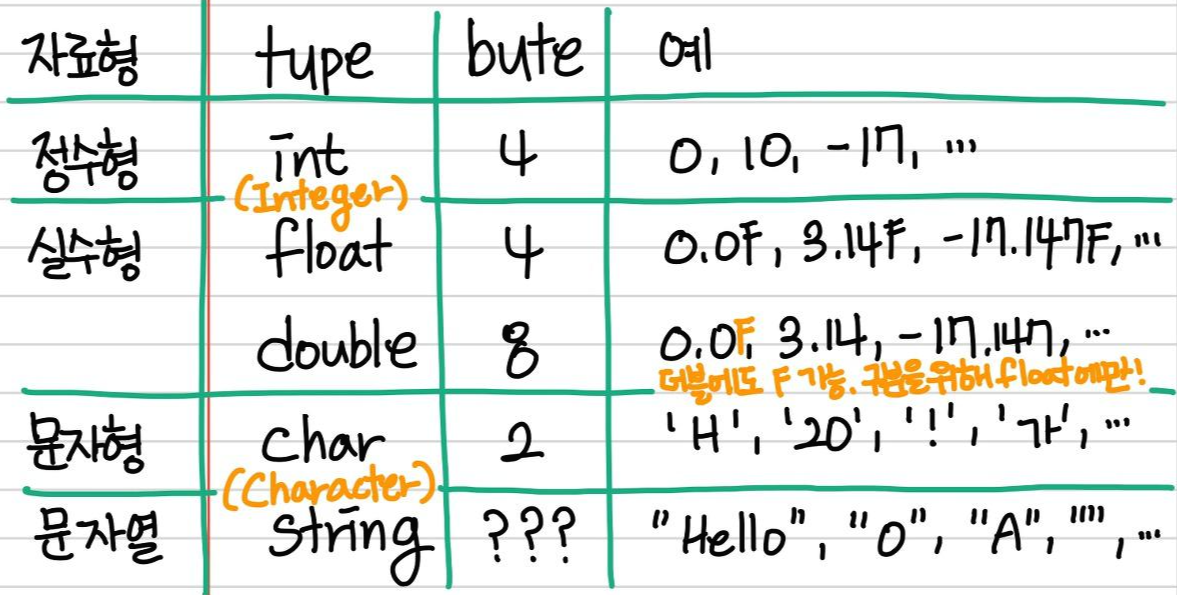 자료형 type bute 예
정수형 int 4 0, 10, -17, ...
(Integer)
실수형 float 4 0.0F, 3.14F, -17.147F, ...
double 8 0.0F, 3.14, -17.147, ...
더블에도 F 가능. 구분을위해 float에만!
문자형 char 2 'H', '20', '!', '가', ...
(Character)
문자열 string ??? "Hello", "O", "A", "", ...